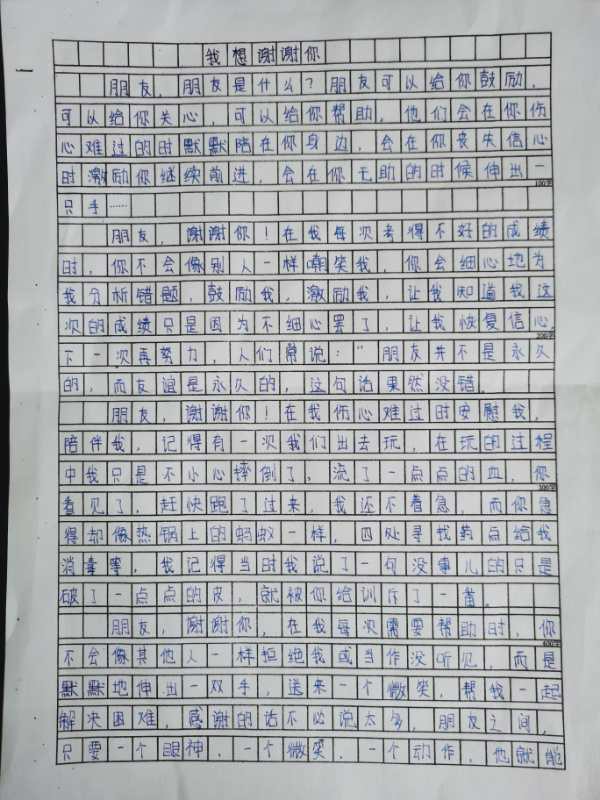 我想谢谢你
朋友，朋友是什么？朋友可以给你鼓励，
可以给你关心，可以给你帮助，他们会在你伤
心难过的时默默陪在你身边，会在你丧失信心
时激励你继续前进，会在你无助的时候伸出一
100字
只手……
朋友，谢谢你！在我每次考得不好的成绩
时，你不会像别人一样嘲笑我，你会细心地为
我分析错题，鼓励我，激励我，让我知道我这
次的成绩只是因为不细心罢了，让我恢复信心
200字
下一次再努力，人们常说：“朋友并不是永久
的，而友谊是永久的，这句话果然没错。
朋友，谢谢你！在我伤心难过时安慰我，
陪伴我，记得有一次我们出去玩，在玩的过程
中我只是不小心摔倒了，流了一点点的血，你
300字
看见了，赶快跑了过来，我还不着急，而你急
得却像热锅上的蚂蚁一样，四处寻找药点给我
消毒等，我记得当时我说了一句没事儿的只是
破了一点点的皮，就被你给训斥了一番。
朋友，谢谢你，在我每次需要帮助时，你
400字
不会像其他人一样拒绝我或当作没听见，而是
默默地伸出一双手，送来一个微笑，帮我一起
解决困难，感谢的话不必说太多，朋友之间，
只要一个眼神，一个微笑，一个动作，他就能